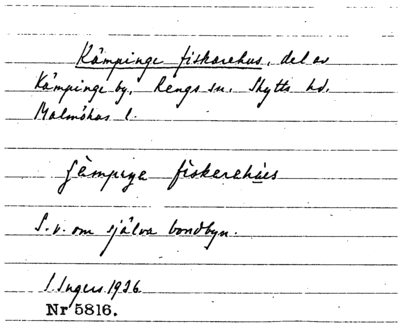 Kämpinge fiskarehus, del av
Kämpinge by, Rengs sn. Skytts hd.
Malmöhus l.
fiskerehues
S.v. om själva bondbyn.
I. Ingers 1936
Nr 5816.